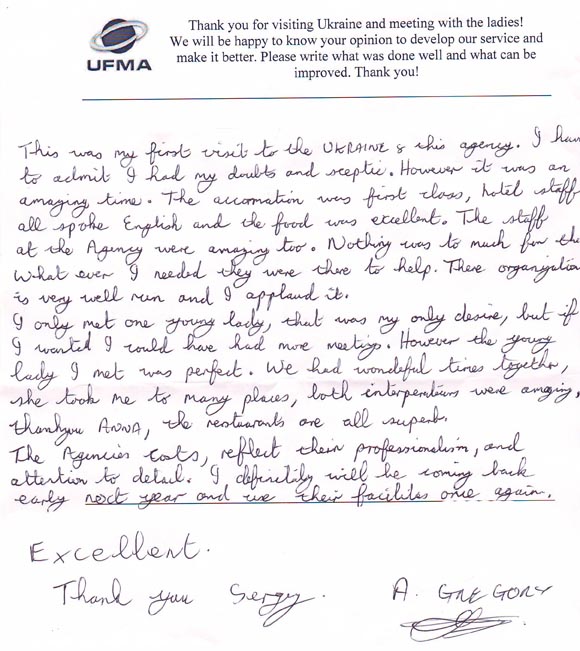 Thank you for visiting Ukraine and meeting with the ladies!
We will be happy to know your opinion to develop our service and
make it better. Please write what was done well and what can be
improved. Thank you!
UFMA
This was my first visit to the UKRAINE & this agency. I have
to admit I had my doubts and sceptic. However it was an
amazing time. The accomation was first class, hotel staff
all spoke English and the food was excellent. The staff
at the Agency were amazing too. Nothing was to much for the
What ever I needed they were there to help. There organization
is very well run and I applaud it.
I only met one young lady, that was my only desire, but if
I wanted I could have had more meetings. However the young
lady I met was perfect. We had wondeful times together,
she took me to many places, both interpeters were amazing,
thankyou ANNA, the restaurants are all superb.
The Agencies costs, reflect their professionalism, and
attention to detail. I definitily will be coming back
early next year and use their facilites once again.
Excellent.
Thank you Sergy.
A. GREGORY